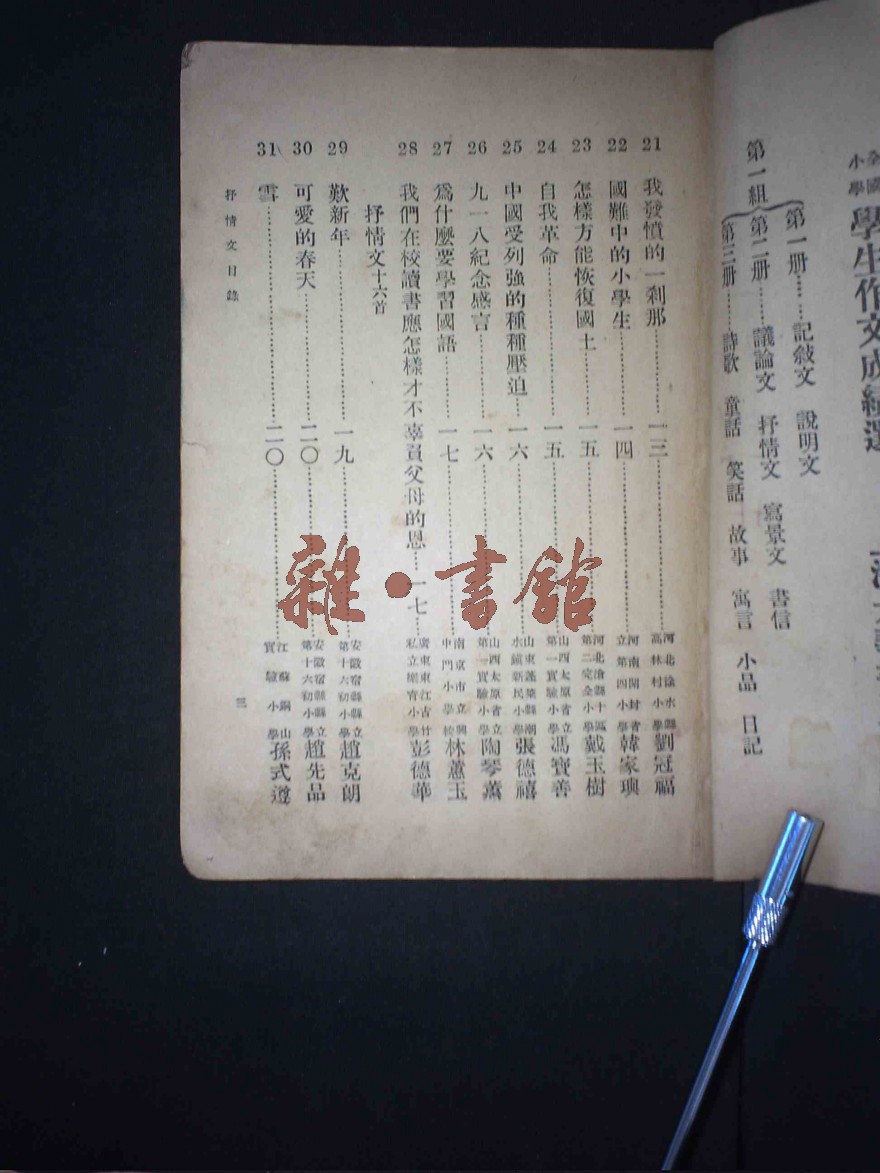 全國
小學
學生作文成績選
第一組
第一册……記敍文　說明文
第二册……議論文　抒情文　寫景文　書信
第三册……詩歌　童話　笑話　故事　寓言　小品　日記
21 我發憤的一剎那……一三……河北徐水縣高林村小學 劉冠福
22 國難中的小學生……一四……河南開封省立第四小學 韓家璵
23 怎樣方能恢復國土……一五……河北滄縣十區第二完全小學 戴玉樹
24 自我革命……一五……山西太原省立第一實驗小學 馮寶善
25 中國受列強的種種壓迫……一六……山東蓬萊縣潮水鎮新民小學 張德禧
26 九一八紀念感言……一六……山西太原省立第一實驗小學 陶琴薰
27 爲什麼要學習國語……一七……南京市立興中門小學校 林蕙玉
28 我們在校讀書應怎樣才不辜負父母的恩……一七……廣東東江古竹私立樂育小學 彭德華
抒情文十六首
29 歎新年……一九……安徽宿縣縣立第十六初小學 趙克朗
30 可愛的春天……二〇……安徽宿縣縣立第十六初小學 趙先品
31 雪……二〇……江蘇銅山實驗小學 孫式遵
抒情文目錄
三
雜·書館